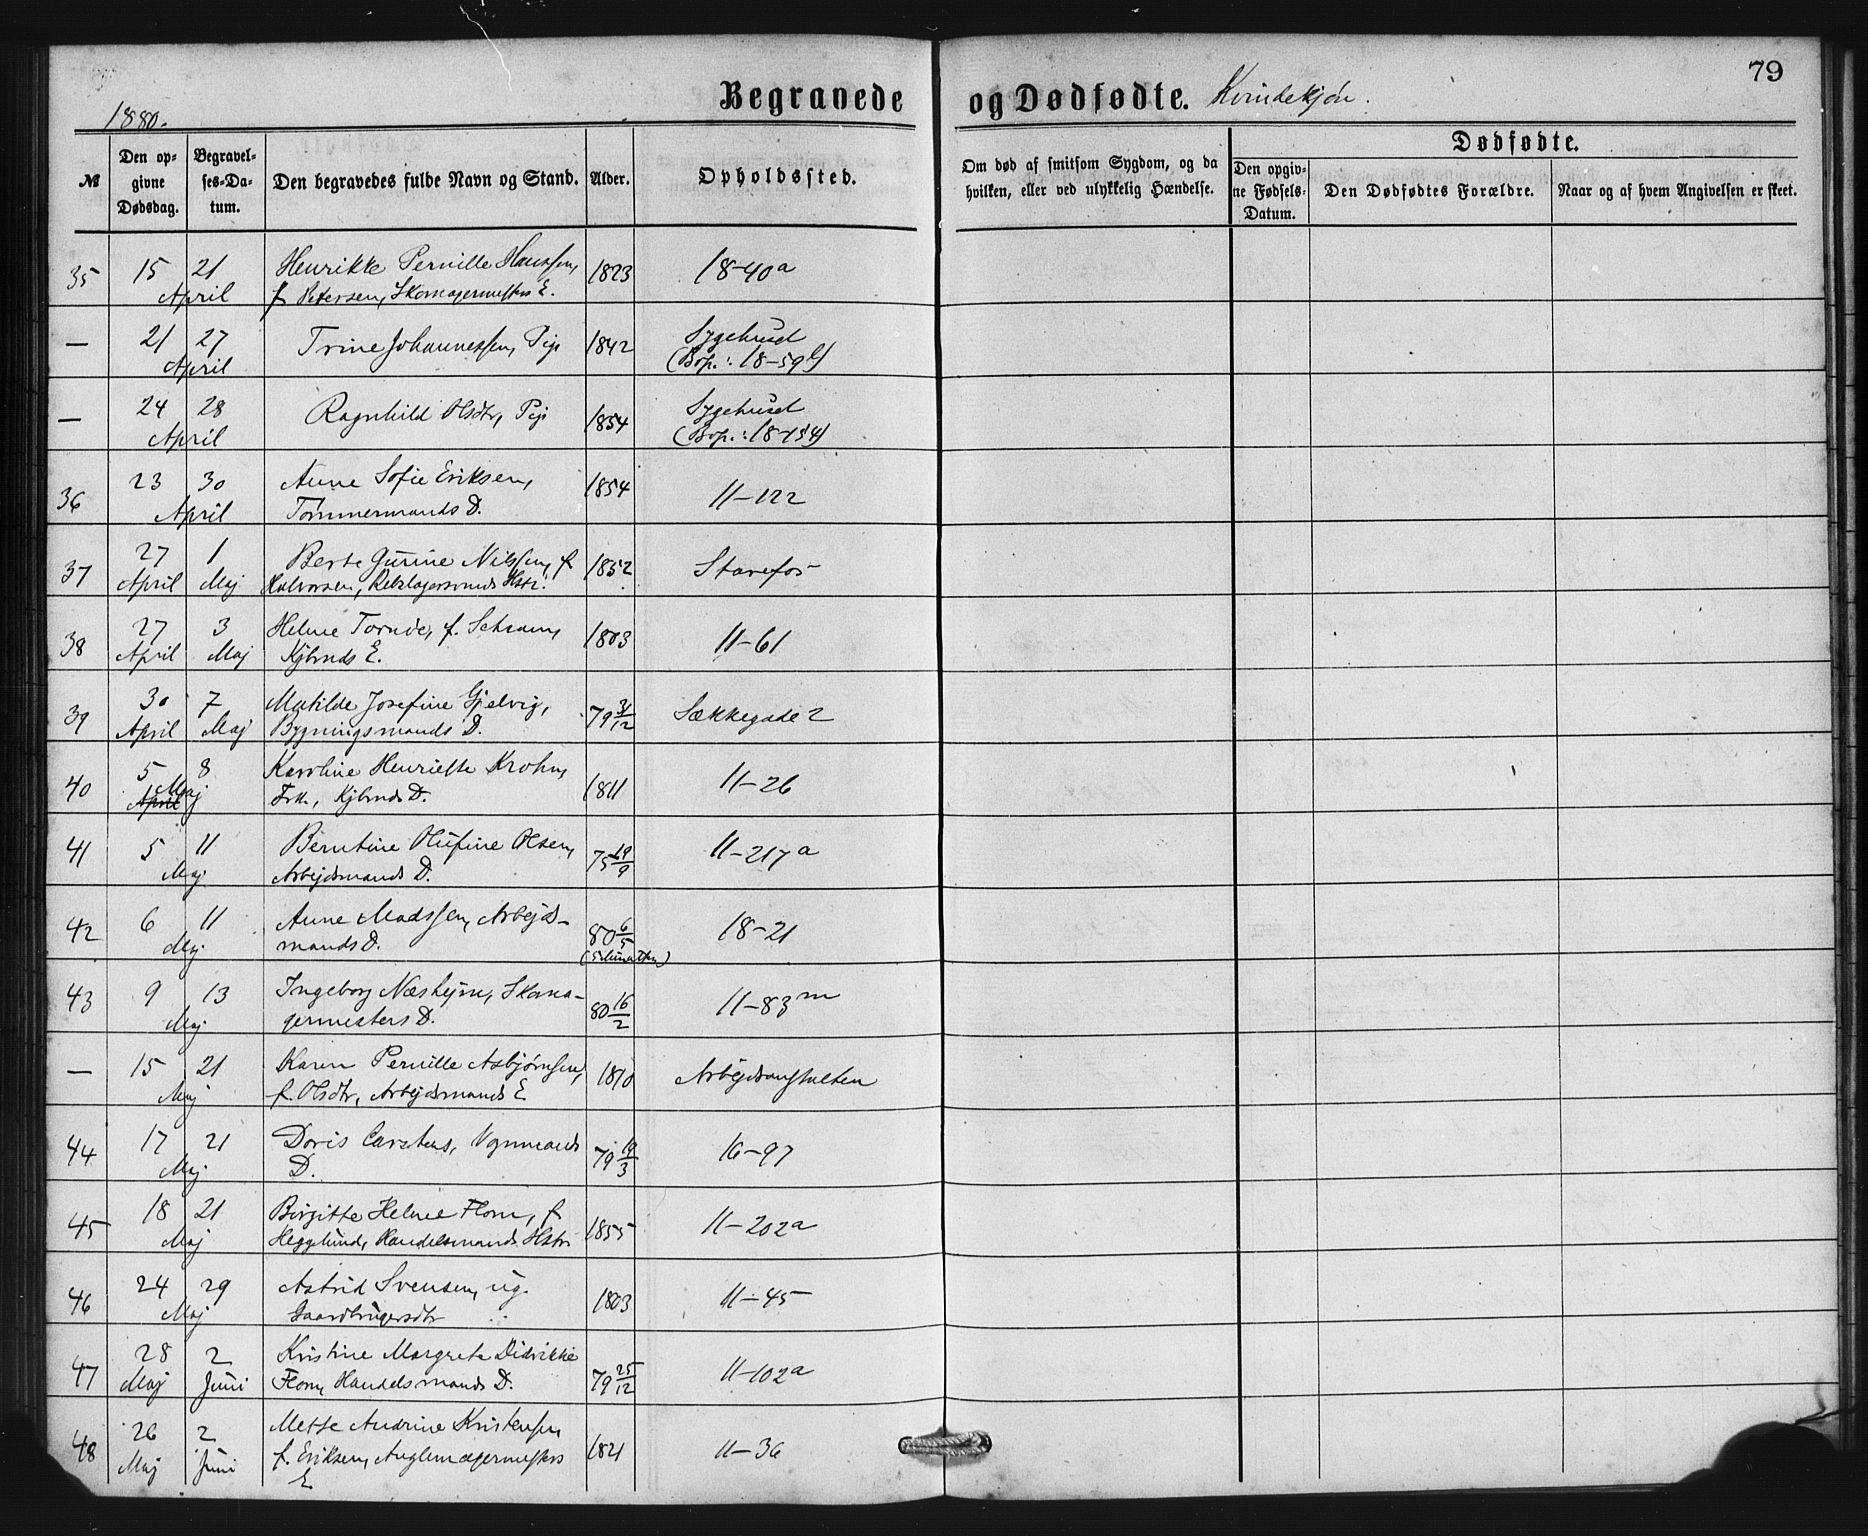 79
Begravede og Dødfødte. Kvindekjøn.
1880.
№
Den opgivne Dødsdag.
Begravelses-Datum.
Den begravedes fulde Navn og Stand.
Alder.
Opholdssted.
Om død af smitsom Sygdom, og da hvilken, eller ved ulykkelig Hændelse.
Dødfødte.
Den opgivne Fødsels-Datum.
Den Dødfødtes Forældre.
Naar og af hvem Angivelsen er skeet.
35 15 21 Henrikke Pernille Hanssen, 1823 18-40a
April f. Petersen, Skomagermesters E.
— 21 27 Trine Johannessen, Pige 1842 Sygehuset
April (Bop.: 18-59b)
— 24 28 Ragnhild Olsdtr, Pige 1854 Sygehuset
April (Bop.: 18-154)
36 23 30 Anne Sofie Eriksen, 1854 11-122
April Tømmermands D.
37 27 1 Berte Gurine Nilssen, f. 1852 Starefos
April Maj Halvorsen, Rebslagersvends Hstr.
38 27 3 Helene Tornøe, f. Schram, 1803 11-61
April Maj Kjbmds E.
39 30 7 Matilde Josefine Gjelvig, 79 31/12 Sækkegade 2
April Maj Bygningsmands D.
40 5 8 Karoline Henriette Krohn, 1811 11-26
April Maj Frk., Kjbmds D.
41 5 11 Berntine Olufine Olsen, 75 19/9 11-217a
Maj Arbejdsmands D.
42 6 11 Anne Madssen, Arbejds- 80 6/5 18-21
Maj mands D. (5 Minutter)
43 9 13 Ingeborg Næshejm, Skoma- 80 16/2 11-83m
Maj germesters D.
— 15 21 Karen Pernille Asbjørnsen, 1810 Arbejdsanstalten
Maj f. Olsdtr, Arbejdsmands E
44 17 21 Doris Carstens, Vognmands 79 19/3 16-97
Maj D.
45 18 21 Birgitte Helene Flom, f. 1855 11-202a
Maj Hegglund, Handelsmands Hstr.
46 24 29 Astrid Svensen, ug. 1803 11-45
Maj Gaardbrugersdtr
47 28 2 Kristine Margrete Didrikke 79 25/12 11-102a
Maj Juni Flom, Handelsmands D.
48 26 2 Mette Andrine Kristensen 1821 11-36
Maj Juni f. Eriksen, Anglemagermesters
E